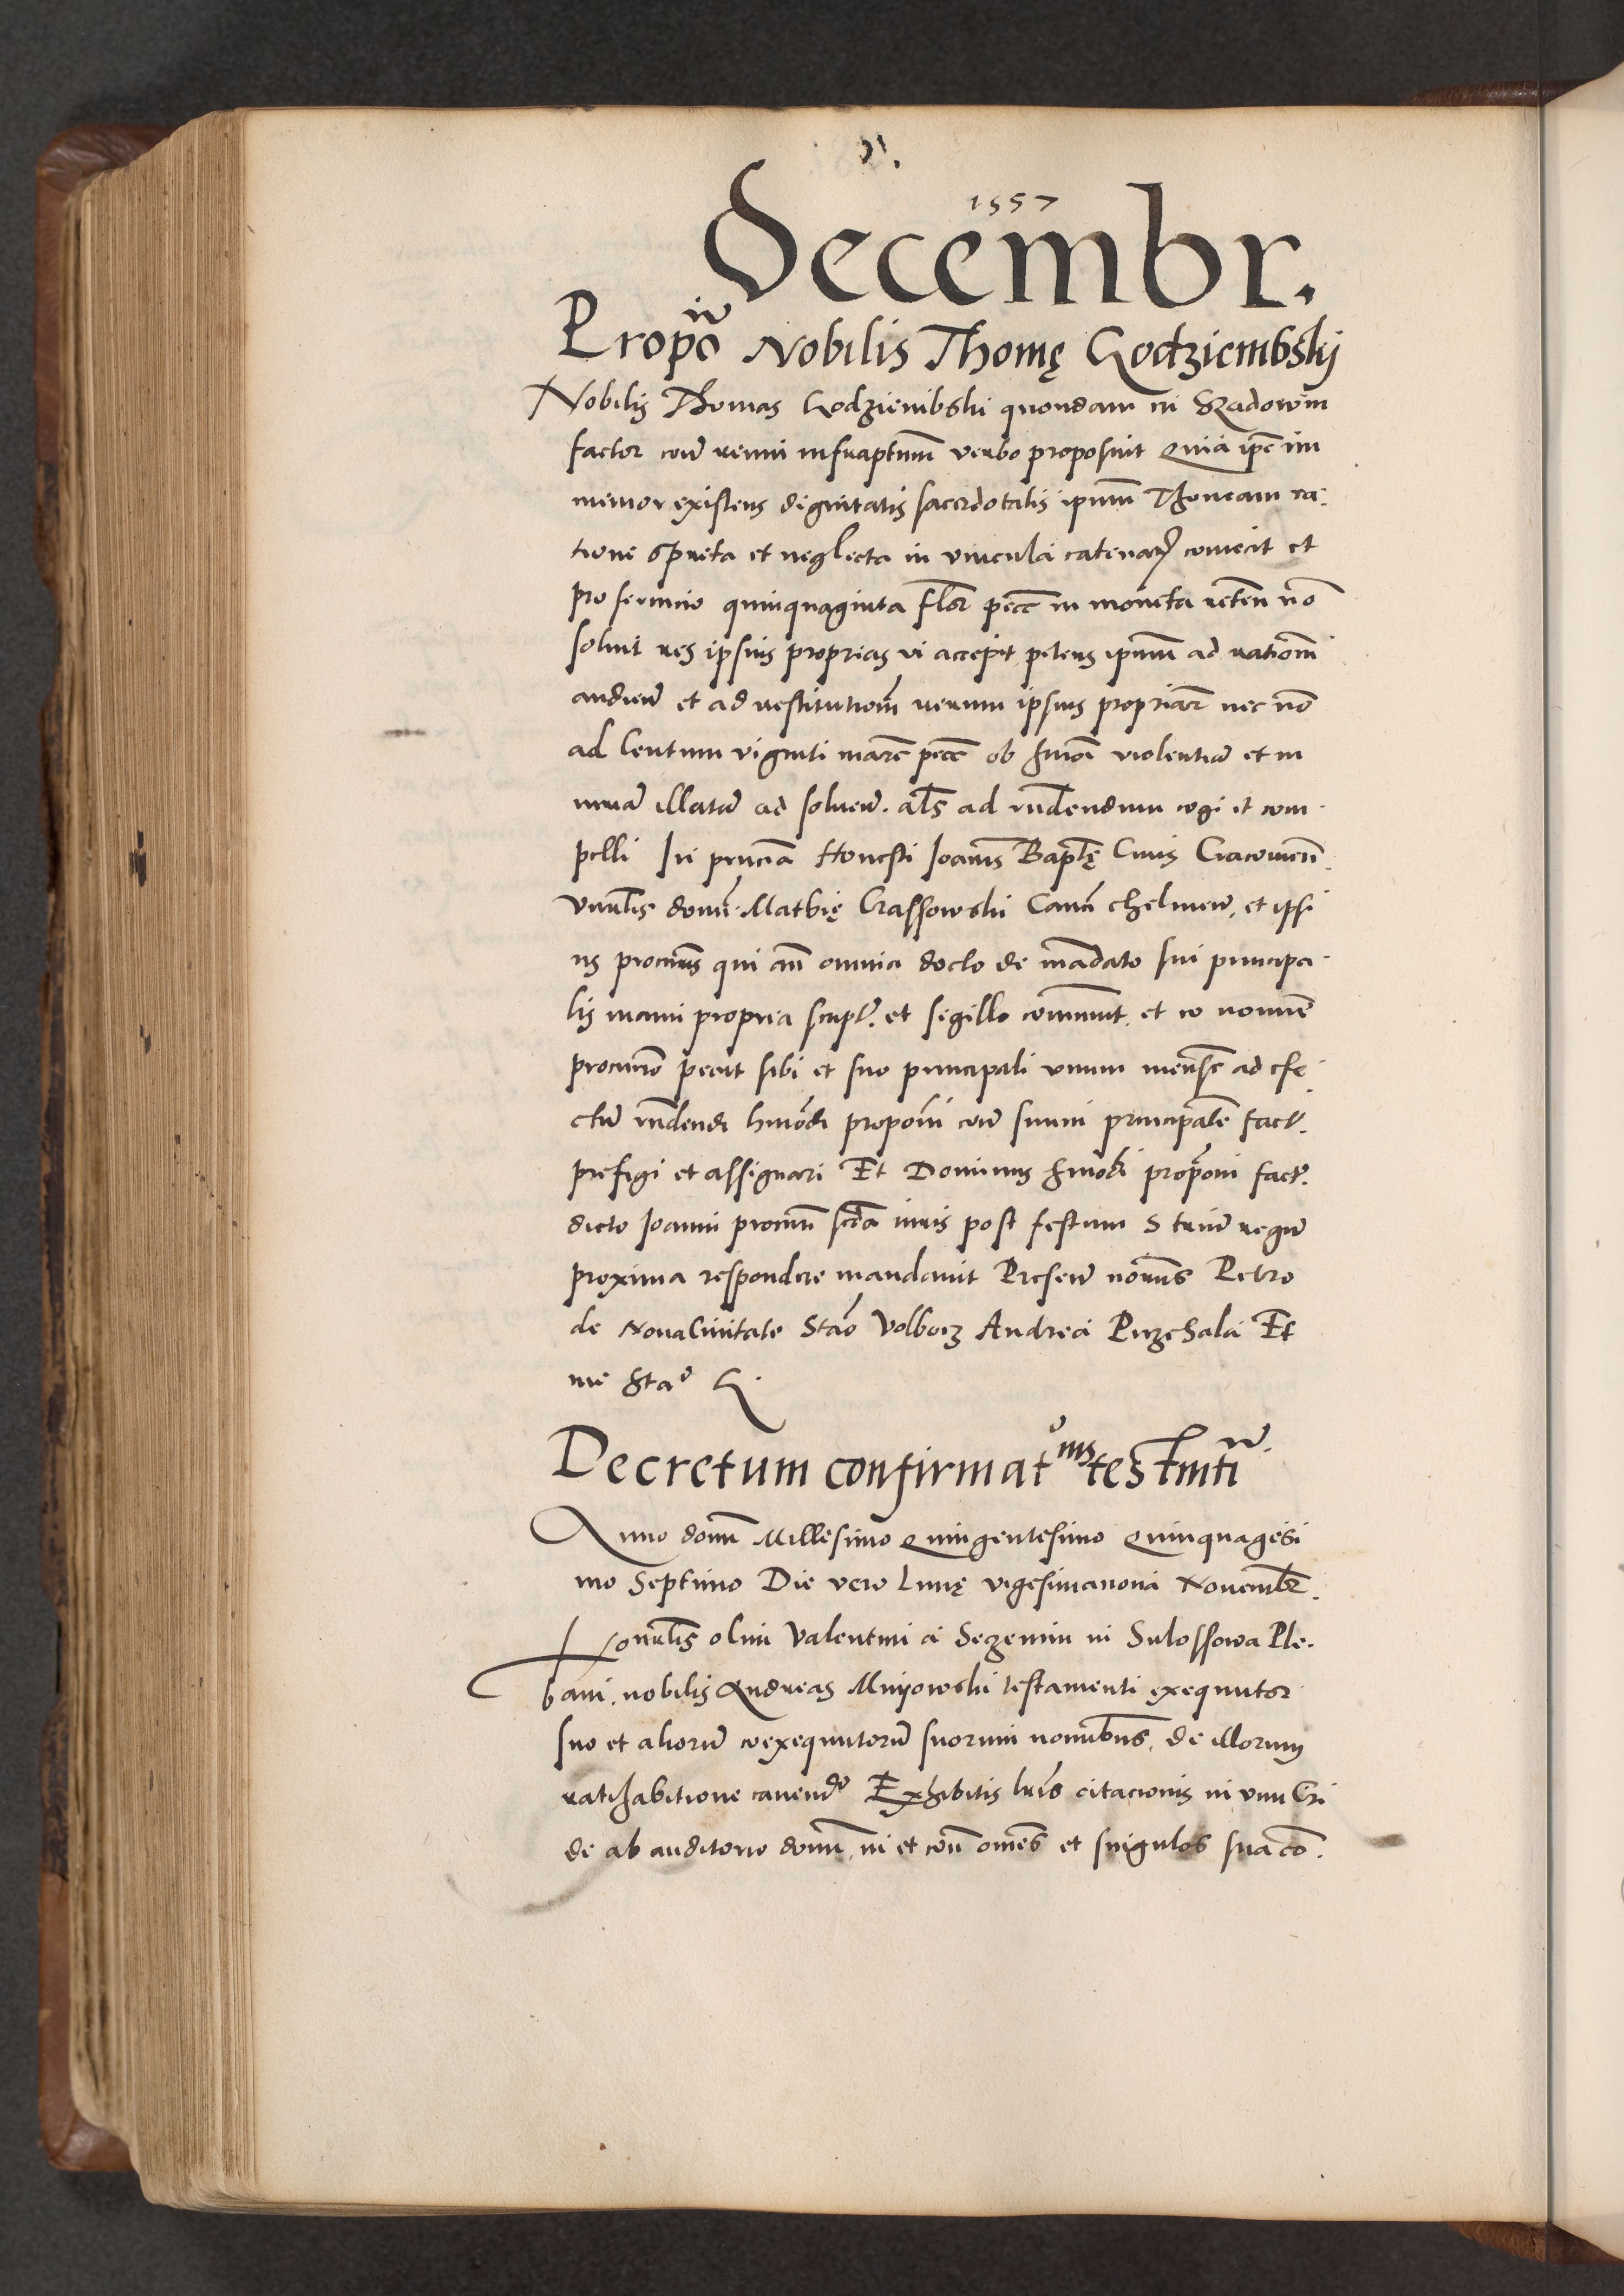 1557
Decembr.
Propõ Nobilis Thomę Godziembskij
Nobilis Thomas Godziembski quondam in Szadow
factor coñ veñ infrascptum verbo proposuit Quia ipẽ im
memor existens dignitatis sacerdotalis ipum Thomam ra
tione spreta et neglecta in vincula catenarꝫ coniecit et
pro seruitio quinquaginta flor pecc in moneta reteñ nõ
soluit res ipsius proprias vi accepit petens ipum ad rationẽ
andieñ et ad restitutionẽ rerum ipsius propriar nec nõ
ad Centum viginti marc pecc ob hmõi violentiã et in
iuriã illatã ad solueñ. als ad rñdendum cogi et com
pelli In pñcia Honesti Joañis Baptę Ciuis Cracouieñ
Veñblis domĩ Mathię Crassowski Cañci chelmeñ. et ipsi
us procuris qui añ omnia docto de mãdato sui principa
lis manu propria script. et sigillo cõmunit. et eo nomine
procurio petiit sibi et suo principali vnum mensẽ ad efe
ctũ rñdendi hmõdi propõni coñ suum principalẽ fact.
prefigi et assignari Et Dominus hmõdi propõni fact.
dicto Joanni procuri scda iuris post festum S triũ regũ
proxima respondere mandauit Preseñ nõtris Petro
de Noua Ciuitate Stão Volborz Andrea Przechala Et
me Stão G.
Decretum confirmatonis testmti
Anno domĩ Millesimo Quingentesimo Quinquagesi
mo Septimo Die vero Lunę vigesimanona Nouembr.
Honblis olim Valentini a Sezemin in Sulossowa Ple
bani. nobilis Andreas Mnijowski testamenti exequutor
suo et aliorũ coexequutorũ suorum nominibus. de illorum
ratihabitione caueñdo Exhibitis lris citacionis in vim Cri
de ab auditorio domĩ. ni et coñ omẽs et singulos sua cõ.